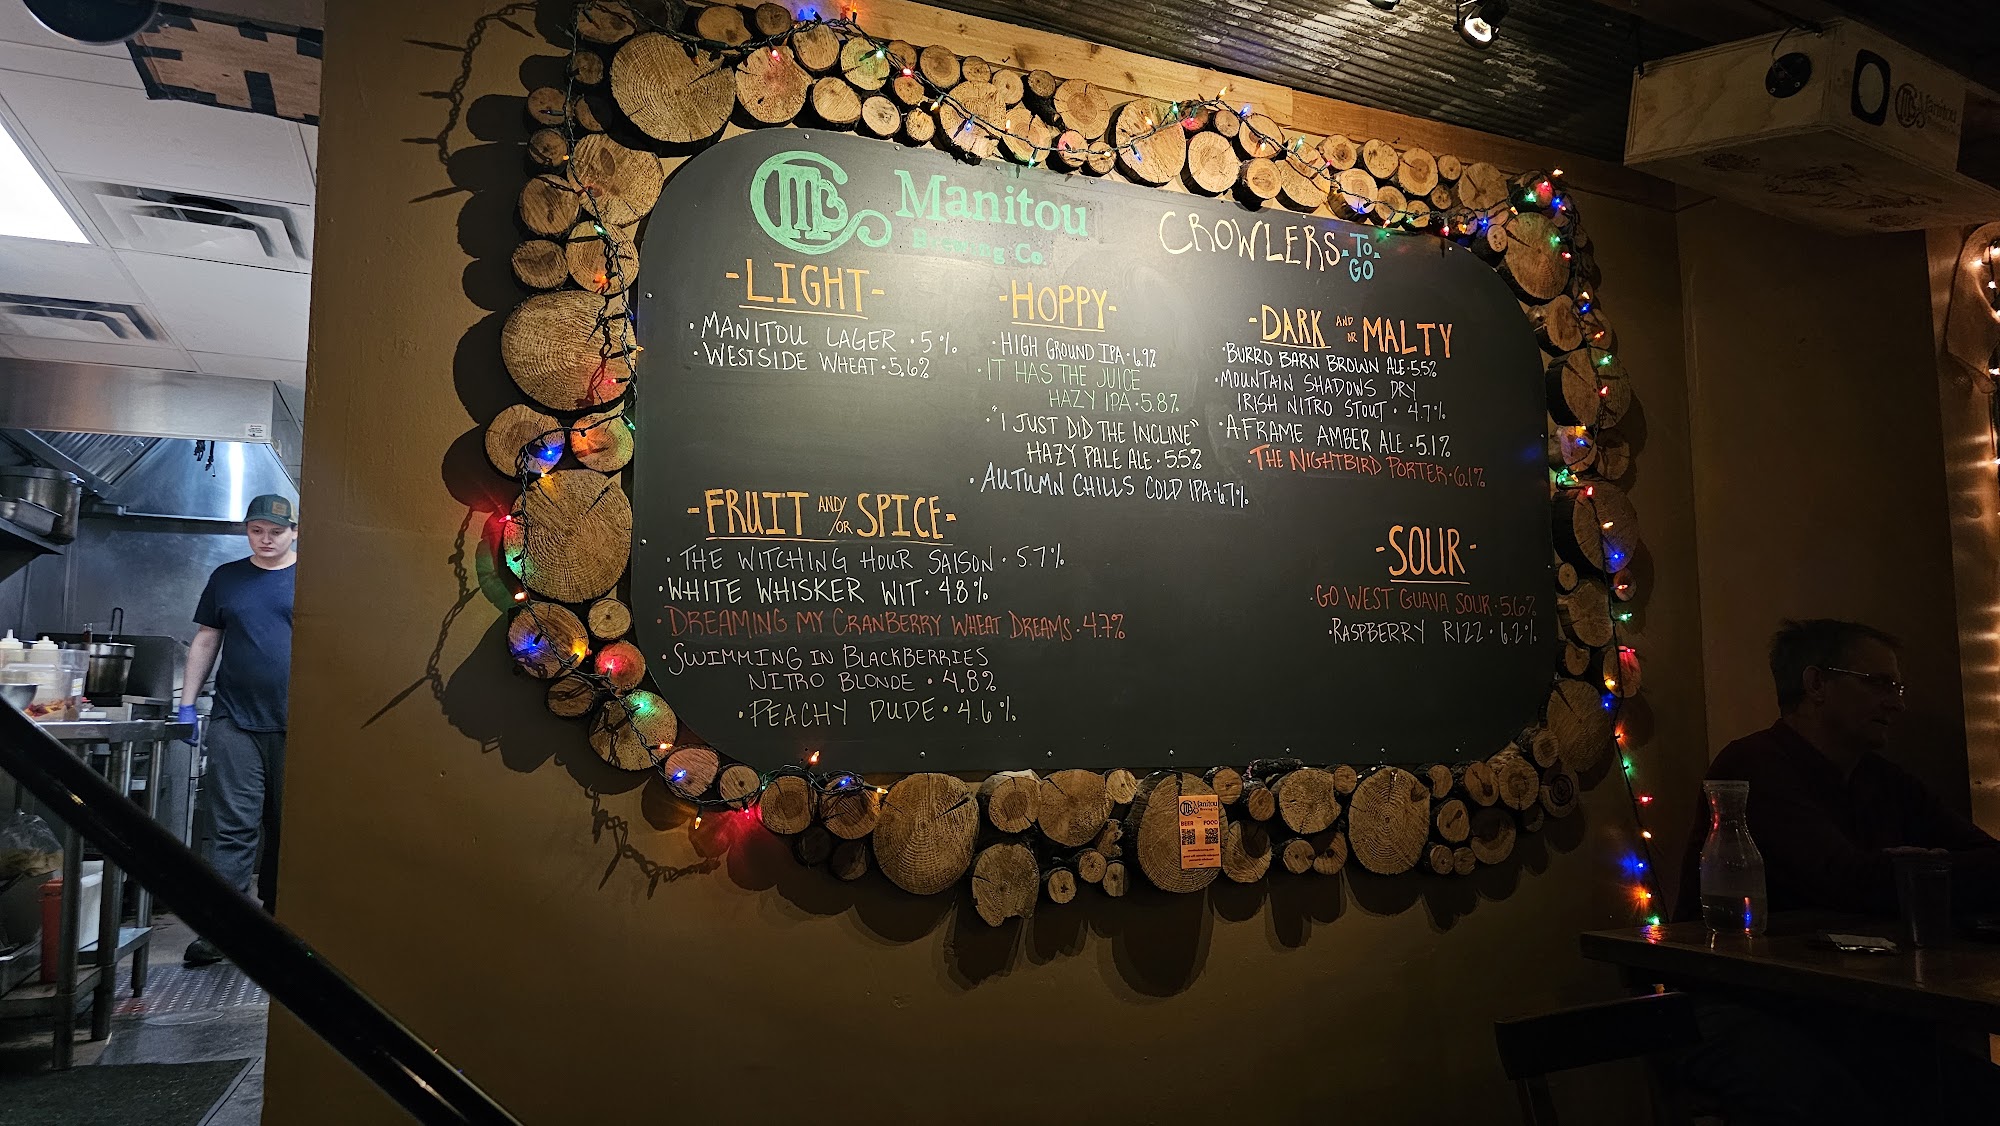 MCB
Manitou
Brewing Co.
CROWLERS -TO-
GO
-LIGHT-
• MANITOU LAGER • 5%
• WESTSIDE WHEAT • 5.6%
-HOPPY-
• HIGH GROUND IPA • 6.9%
• IT HAS THE JUICE
HAZY IPA • 5.8%
• "I JUST DID THE INCLINE"
HAZY PALE ALE • 5.5%
• AUTUMN CHILLS COLD IPA • 6.7%
-DARK AND OR MALTY
• BURRO BARN BROWN ALE • 5.5%
• MOUNTAIN SHADOWS DRY
IRISH NITRO STOUT • 4.7%
• A-FRAME AMBER ALE • 5.1%
• THE NIGHTBIRD PORTER • 6.1%
-FRUIT AND/OR SPICE-
• THE WITCHING HOUR SAISON • 5.7%
• WHITE WHISKER WIT • 4.8%
• DREAMING MY CRANBERRY WHEAT DREAMS • 4.7%
• SWIMMING IN BLACKBERRIES
NITRO BLONDE • 4.8%
• PEACHY DUDE • 4.6%
-SOUR-
• GO WEST GUAVA SOUR • 5.6%
• RASPBERRY RIZZ • 6.2%
Manitou
BEER FOOD
Manitou